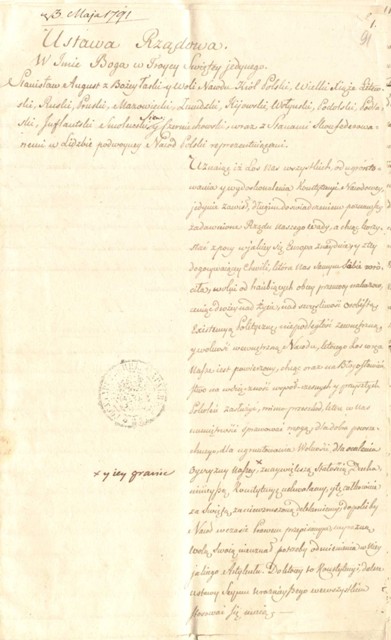 3. Maja 1791
91
Ustawa Rządowa.
W Imie Boga w Troycy Swiętey jedynego.
Stanisław August z Bożey Łaski y Woli Narodu Król Polski, Wielki Xiąże Litew-
ski, Ruski, Pruski, Mazowiecki, Żmudzki, Kijowski, Wołyński, Podolski, Podla-
ski, Inflantski Smoleński, Siewierski y Czerniechowski, wraz z Stanami Skonfederowa-
nemi w Liczbie podwoyney Naród Polski reprezentuiącemi.
Uznaiąc iż Los nas wszystkich od ugrunto-
wania y wydoskonalenia Konstytucyi Narodowey
jedynie zawisł, długim doświadczeniem poznawszy
zadawnione Rządu naszego wady, a chcąc korzy-
stać z pory w jakiey się Europa znayduie y z tey
dogorywaiącey Chwili, która nas samym sobie wróci-
ła, wolni od hańbiących obcey przemocy nakazów,
ceniąc drożey nad życie, nad szczęśliwość osobistą
Existencyą Polityczną, niepodległość zewnętrzną
y wolność wewnętrzną Narodu, którego Los w ręce
Nasze iest powierzony, chcąc oraz na Błogosławień-
stwo na wdzięczność współczesnych y przyszłych
Pokoleń zasłużyć, mimo przeszkód, które w nas
namiętności sprawować mogą, dla dobra powsze-
chnego, dla ugruntowania Wolności, dla ocalenia
Oyczyzny Naszey x z naywiększą stałością Ducha
ninieyszą Konstytucyą uchwalamy, y tę całkowicie
za Swiętą, za niewzruszoną deklaruiemy, dopókiby
Naród w czasie Prawem przepisanym, wyraźną
Wolą swoią nie uznał potrzeby odmienienia w niey
jakiego Artykułu. Do którey to Konstytucyi, dalsze
ustawy Seymu teraznieyszego we wszystkiem
stosować się maią.
x y iey granic